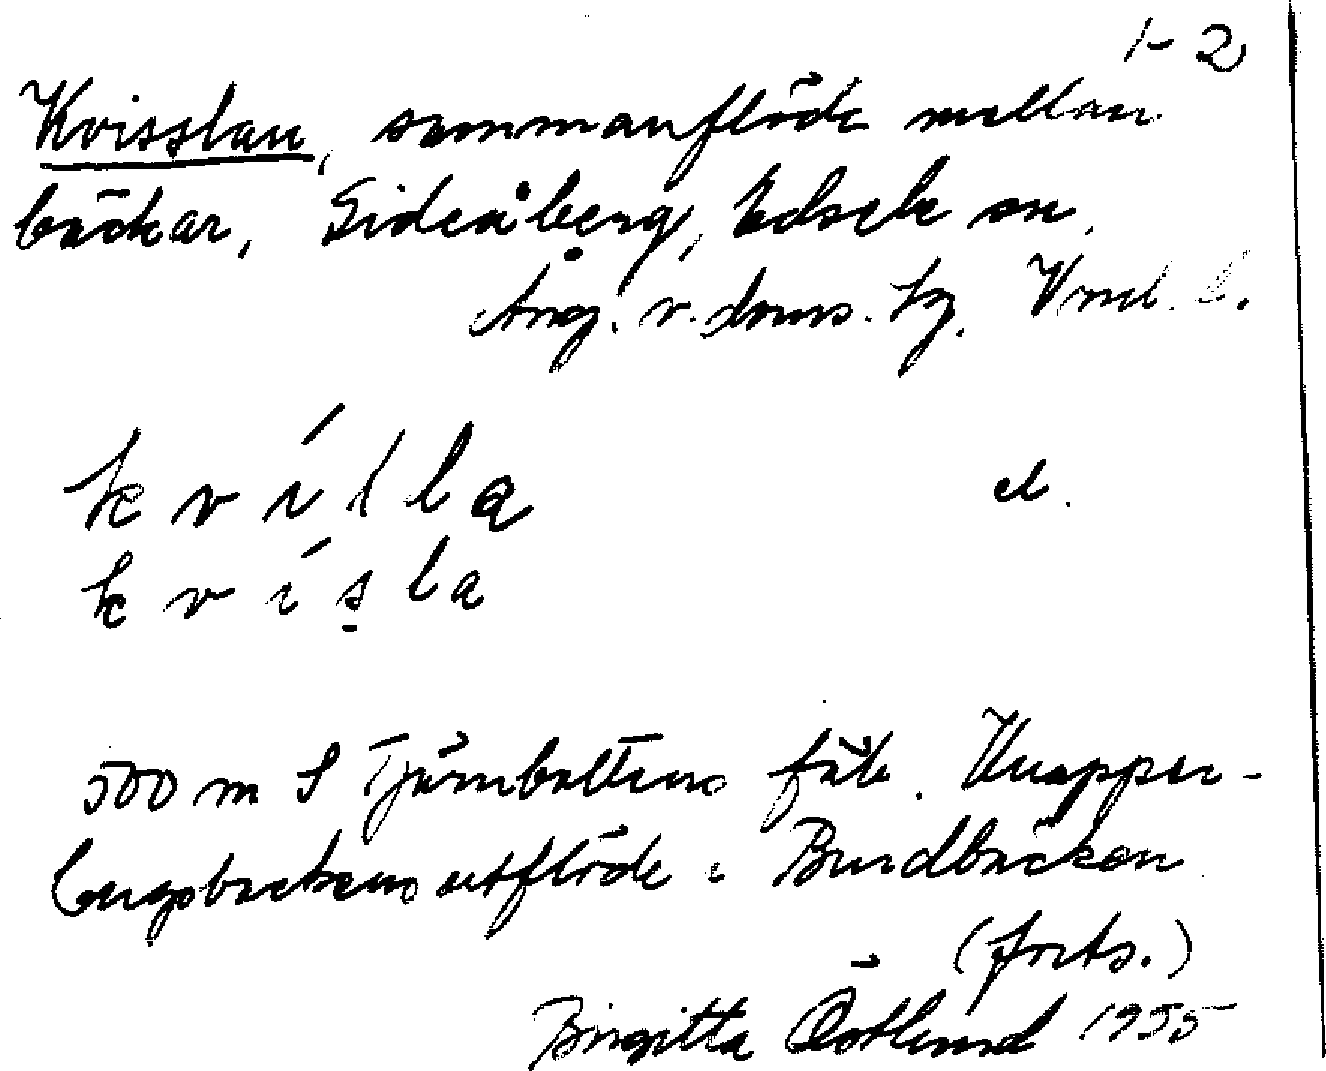 1-2
Kvisslan, sammanflöde mellan
bäckar, Sideåberg, Edsele sn,
Ång. v. doms. tg. Vnrl. l.
kvílla el.
kvísla
500 m S Tjärnbottens fäb. Knappen-
bergsbäckens utflöde i Burdbäcken
(forts.)
Birgitta Östlund 1955